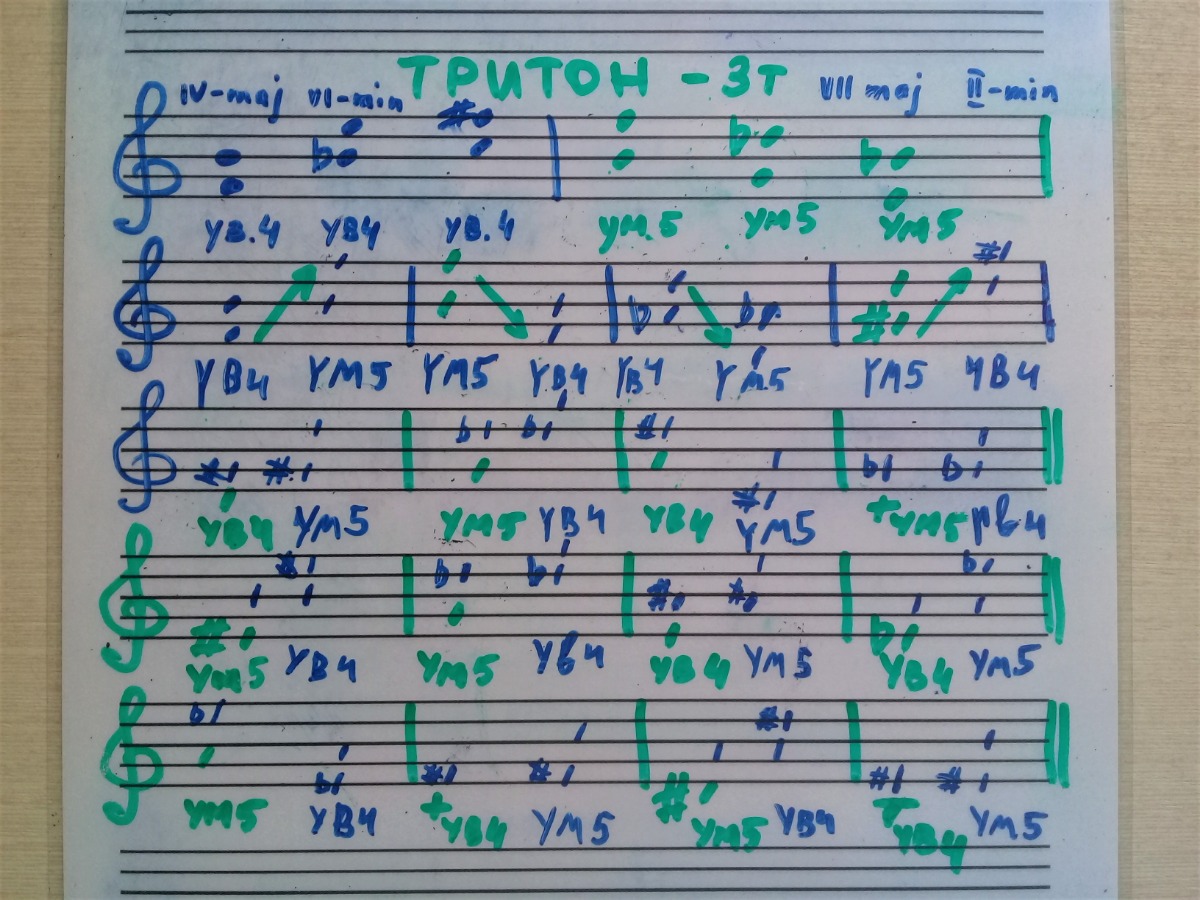 ТРИТОН - 3т
IV-maj VI-min VII maj II-min
ув.4 ув4 ув.4 ум.5 ум5 ум5
ув4 ум5 ум5 ув4 ув4 ум5 ум5 ув4
ув4 ум5 ум5 ув4 ув4 ум5 +ум5 ув4
ум5 ув4 ум5 ув4 ув4 ум5 ув4 ум5
ум5 ув4 +ув4 ум5 ум5 ув4 т ув4 ум5